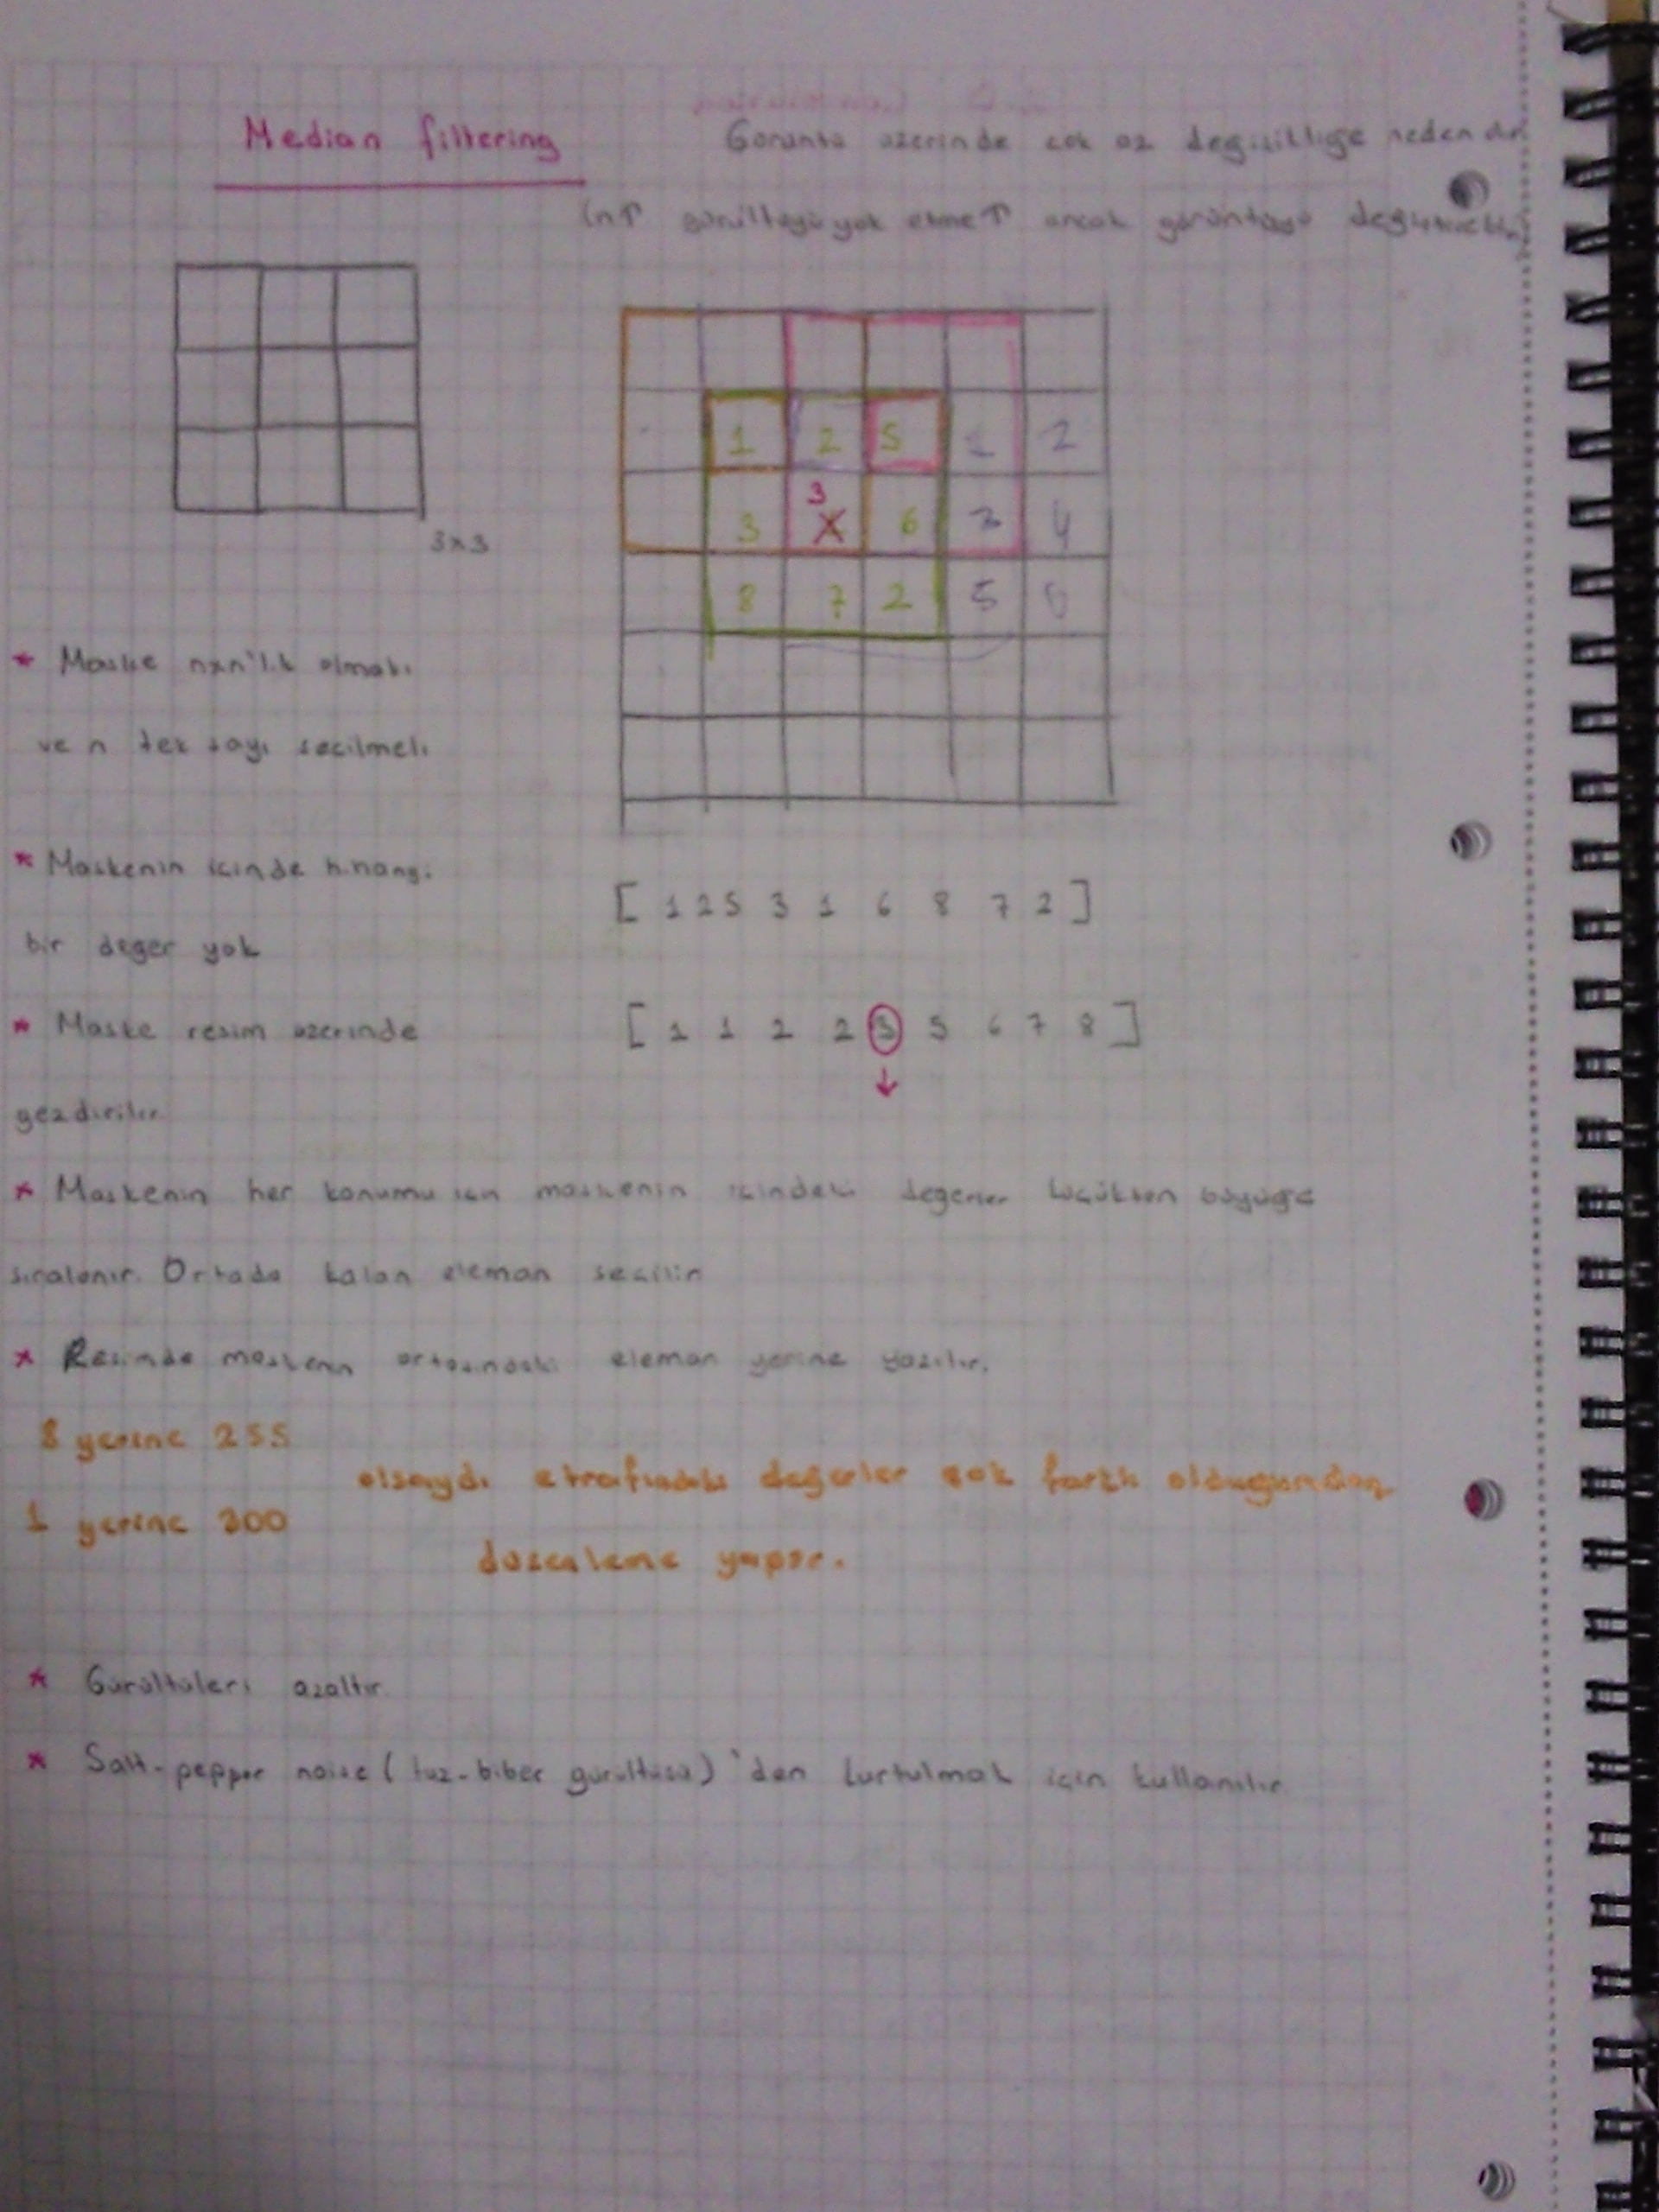 Median filtering
Görüntü üzerinde çok az değişikliğe neden olur
(n↑ gürültüyü yok etme↑ ancak görüntüyü
3x3
1 2 5 1 2
3 3 X 6 3 4
8 7 2 5 6
* Maske nxn'lik olmalı
ve n tek sayı seçilmeli
* Maskenin içinde h.hangi
bir değer yok
[ 1 2 5 3 1 6 8 7 2 ]
* Maske resim üzerinde
[ 1 1 2 2 3 5 6 7 8 ]
↓
gezdirilir
* Maskenin her konumu için maskenin içindeki değerler küçükten büyüğe
sıralanır. Ortada kalan eleman seçilir
* Resimde maskenin ortasındaki eleman yerine yazılır.
8 yerine 255
olsaydı etrafındaki değerler çok farklı olduğundan
1 yerine 300
düzenleme yapar.
* Gürültüleri azaltır.
* Salt-pepper noise (tuz-biber gürültüsü)'den kurtulmak için kullanılır